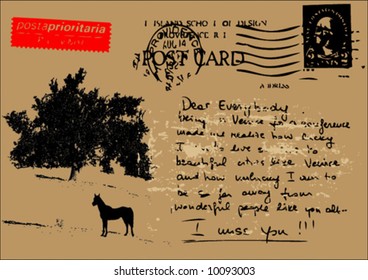 postaprioritaria
ISLAND SCHOOL OF DESIGN
PROVIDENCE R I
PROVIDENCE
AUG 14
POST CARD
Dear Everybody
being in Venice for a conference
made me realize how lucky
I am to live so close to
beautiful cities like Venice
and how unlucky I am to
be so far away from
wonderful people like you all..
I miss you !!!
www.shutterstock.com · 10093003